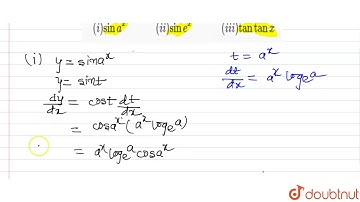 (i) sin aˣ (ii) sin eˣ (iii) tan tan x
(i) y = sin aˣ
y = sin t
dy/dx = cost dt/dx
= cos aˣ (aˣ logₑa)
= aˣ logₑa cos aˣ
t = aˣ
dt/dx = aˣ logₑa
doubtnut